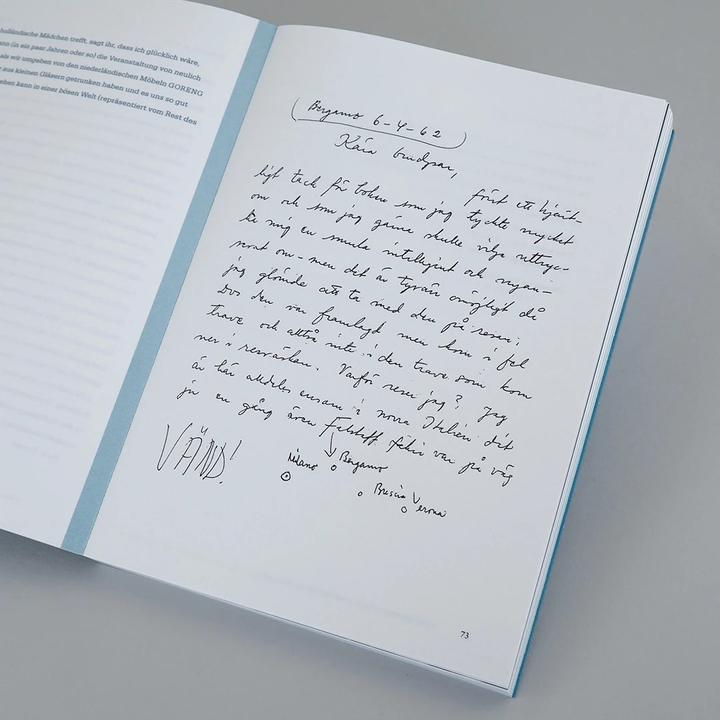 holländische Mädchen trefft, sagt ihr, dass ich glücklich wäre,
(in ein paar Jahren oder so) die Veranstaltung von neulich
als wir umgeben von den niederländischen Möbeln GORENG
aus kleinen Gläsern getrunken haben und es uns so gut
kann in einer bösen Welt (repräsentiert vom Rest des
Bergamo 6-4-62
Kära
först ett hjärt-
ligt tack för boken som jag tyckte mycket
om och som jag gärna skulle vilja uttryc-
ka mig en smula intelligent och nyan-
serat om - men det är tyvärr omöjligt då
jag glömde att ta med den på resan;
Dvs den var framlagd men kom i fel
trave och alltså inte i den trave som kom
ner i resväskan. Varför reser jag? Jag
är här alldeles ensam i norra Italien dit
ju en gång även Falstaff fakir var på väg
VÄND!
Milano
Bergamo
Brescia
Verona
73